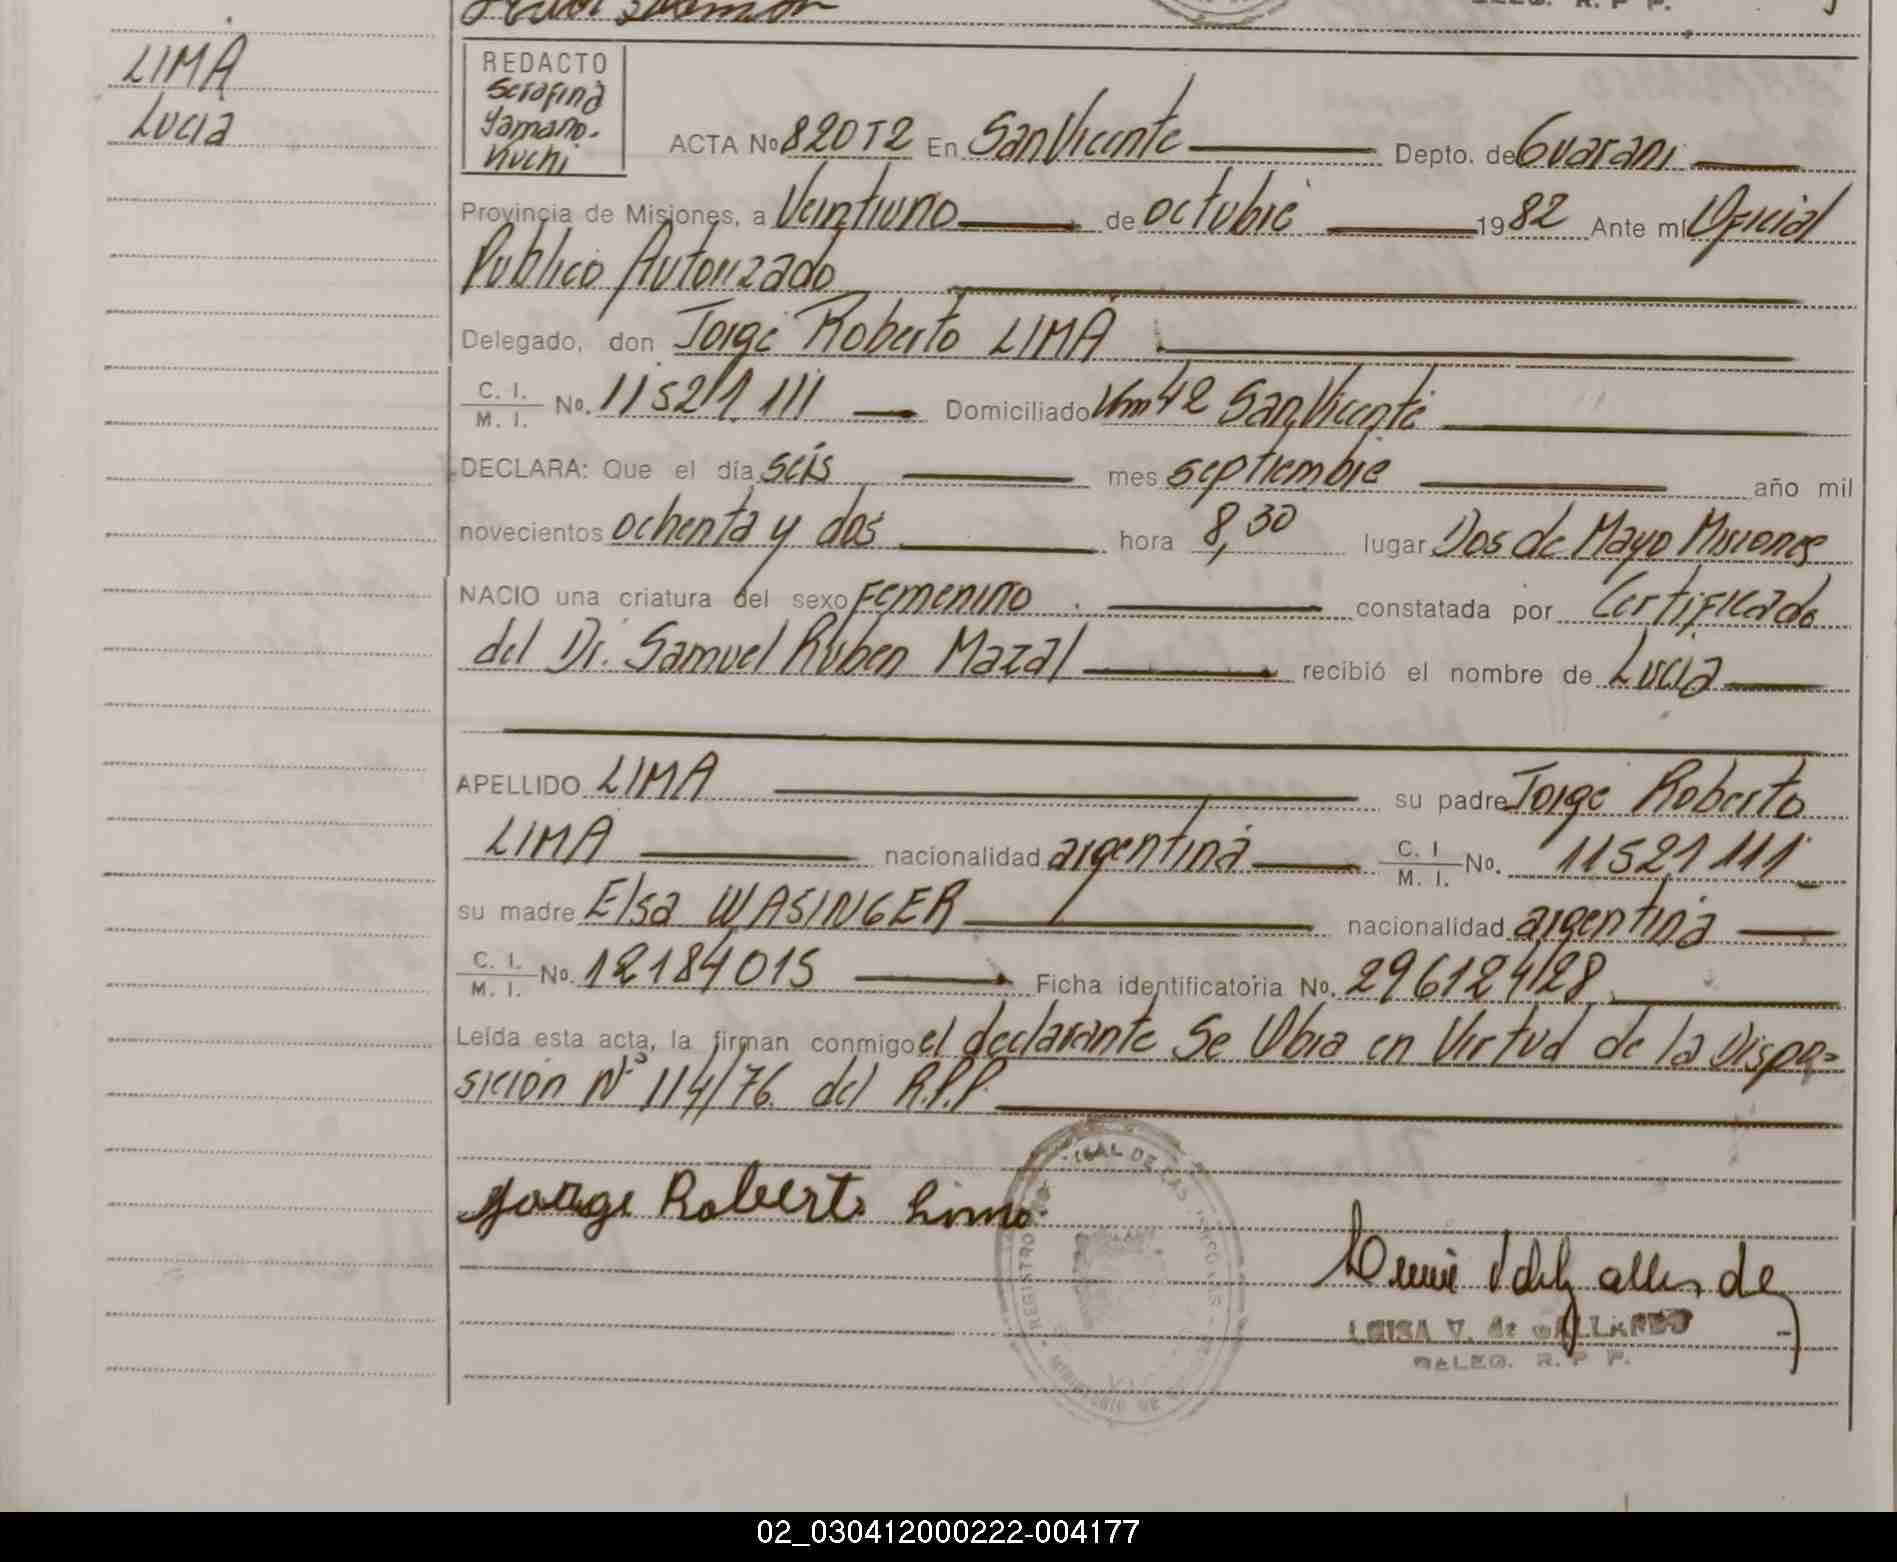 LIMA
Lucia
REDACTO
Serafina
Yamano-
Kuchi
ACTA No 820T2 En San Vicente Depto. de Guaraní
Provincia de Misiones, a Veintiuno de octubre 1982 Ante mí Oficial
Publico Autorizado
Delegado, don Jorge Roberto LIMA
C. I.
M. I. No. 11521.111 Domiciliado Km 42 San Vicente
DECLARA: Que el día seis mes septiembre año mil
novecientos ochenta y dos hora 8,30 lugar Dos de Mayo Misiones
NACIO una criatura del sexo Femenino constatada por Certificado
del Dr. Samuel Ruben Mazal recibió el nombre de Lucia
APELLIDO LIMA su padre Jorge Roberto
LIMA nacionalidad argentina C. I
M. I. No. 11521111
su madre Elsa WASINGER nacionalidad argentina
C. I.
M. I. No. 12184015 Ficha identificatoria No. 296124128
Leída esta acta, la firman conmigo el declarante Se Obra en Virtud de la Dispo=
sición Nº 114/76 del R.P.P.
Jorge Roberto Lima
LUISA V. de GALLARDO
DALEG. R. P P.
02_030412000222-004177